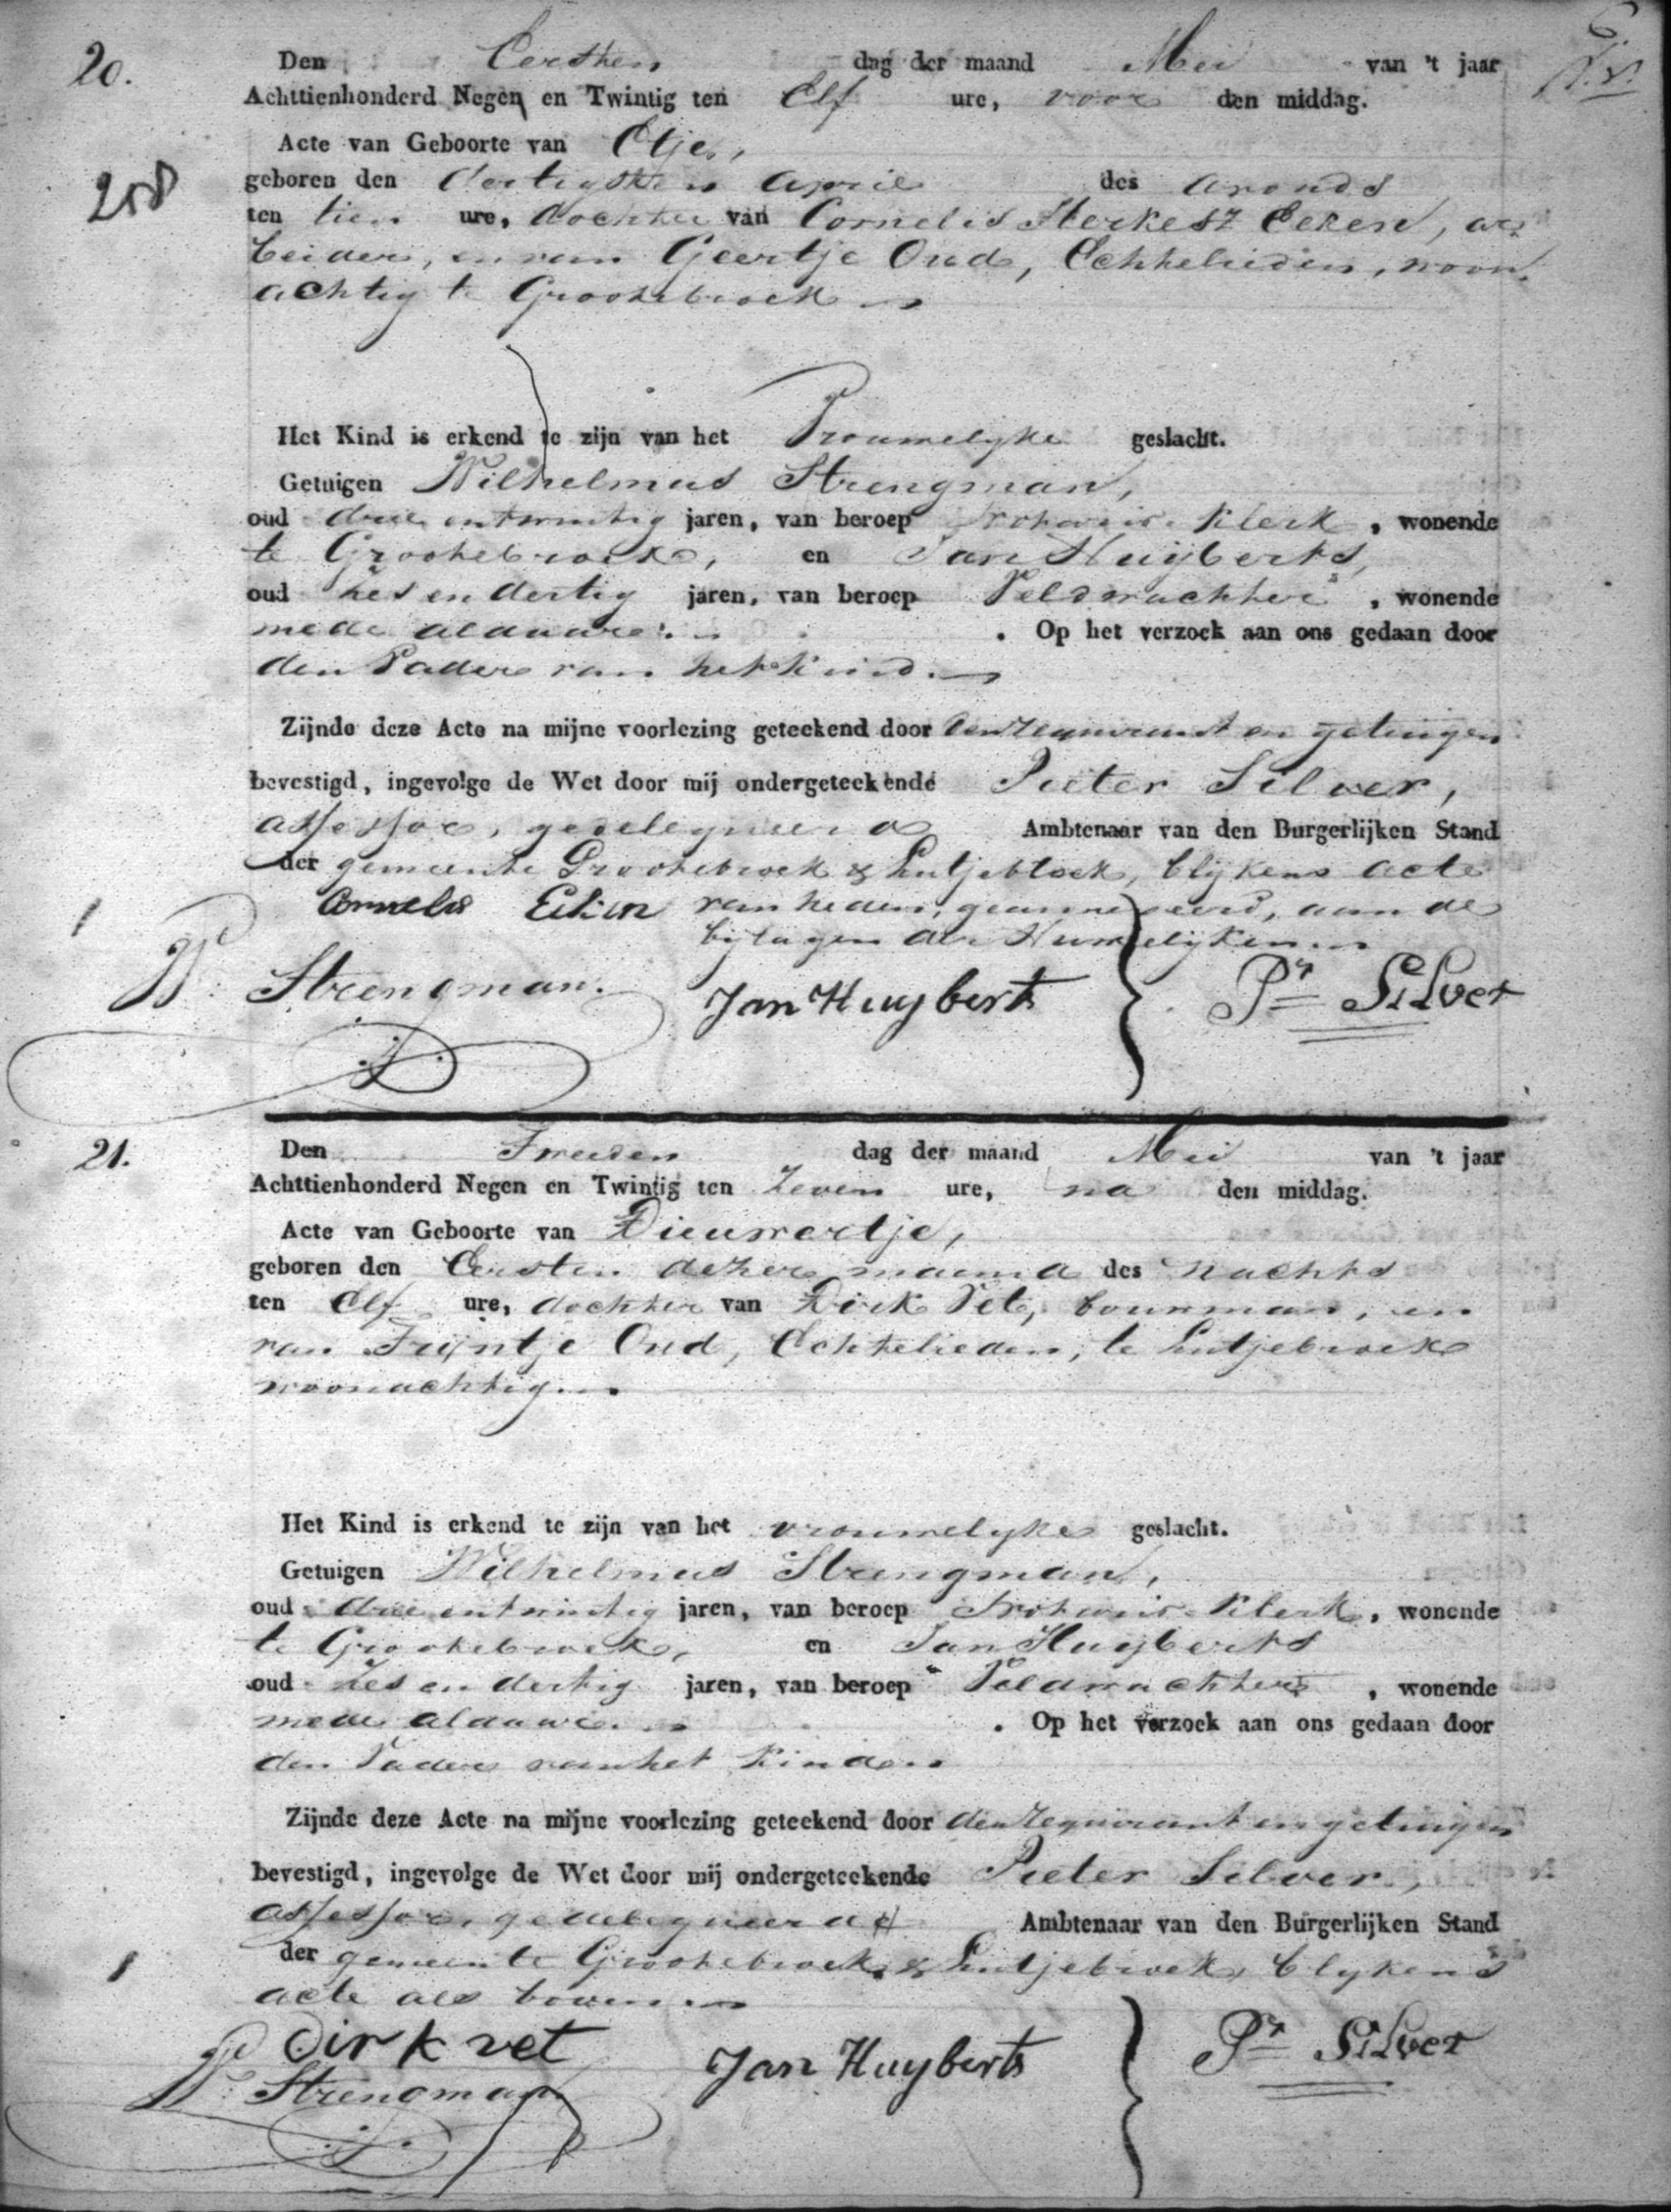 20. Den Eersten dag der maand Mei van 't jaar
Achttienhonderd Negen en Twintig ten Elf ure, voor den middag.
Acte van Geboorte van Etje,
258
geboren den dertigsten April des avonds
ten tien ure, dochter van Cornelis Sterkesz Eeken, ar-
beider, en van Geertje Oud, Echtelieden, woon-
achtig te Grootebroek
Het Kind is erkend te zijn van het Vrouwelyke geslacht.
Getuigen Wilhelmus Strengman,
oud drie en twintig jaren, van beroep klerk, wonende
te Grootebroek, en Jan Huijberts,
oud zes en dertig jaren, van beroep Veldwachter, wonende
mede aldaar. Op het verzoek aan ons gedaan door
den Vader van het kind.
Zijnde deze Acte na mijne voorlezing geteekend door den requirant en getuigen
bevestigd, ingevolge de Wet door mij ondergeteekende Pieter Silver,
assessor, gedelegueerd Ambtenaar van den Burgerlijken Stand
der gemeente Grootebroek & Lutjebroek, blijkens acte
Cornelis Eeken van heden, geannexeerd, aan de
bijlagen der Huwelijken
W: Strengman. Jan Huyberts Pr Silver
21. Den Tweeden dag der maand Mei van 't jaar
Achttienhonderd Negen en Twintig ten Zeven ure, na den middag.
Acte van Geboorte van Dieuwertje,
geboren den Eersten dezer maand des nachts
ten Elf ure, dochter van Dirk Vet, bouwman, en
van Trijntje Oud, Echtelieden, te Lutjebroek
woonachtig
Het Kind is erkend te zijn van het vrouwelyke geslacht.
Getuigen Wilhelmus Strengman,
oud drie en twintig jaren, van beroep klerk, wonende
te Grootebroek, en Jan Huyberts
oud zes en dertig jaren, van beroep Veldwachter, wonende
mede aldaar. Op het verzoek aan ons gedaan door
den Vader van het kind
Zijnde deze Acte na mijne voorlezing geteekend door den requirant en getuigen
bevestigd, ingevolge de Wet door mij ondergeteekende Pieter Silver,
assessor, gedelegueerd Ambtenaar van den Burgerlijken Stand
der gemeente Grootebroek & Lutjebroek, blykens
acte als boven
Dirk vet
W: Strengman Jan Huyberts Pr Silver